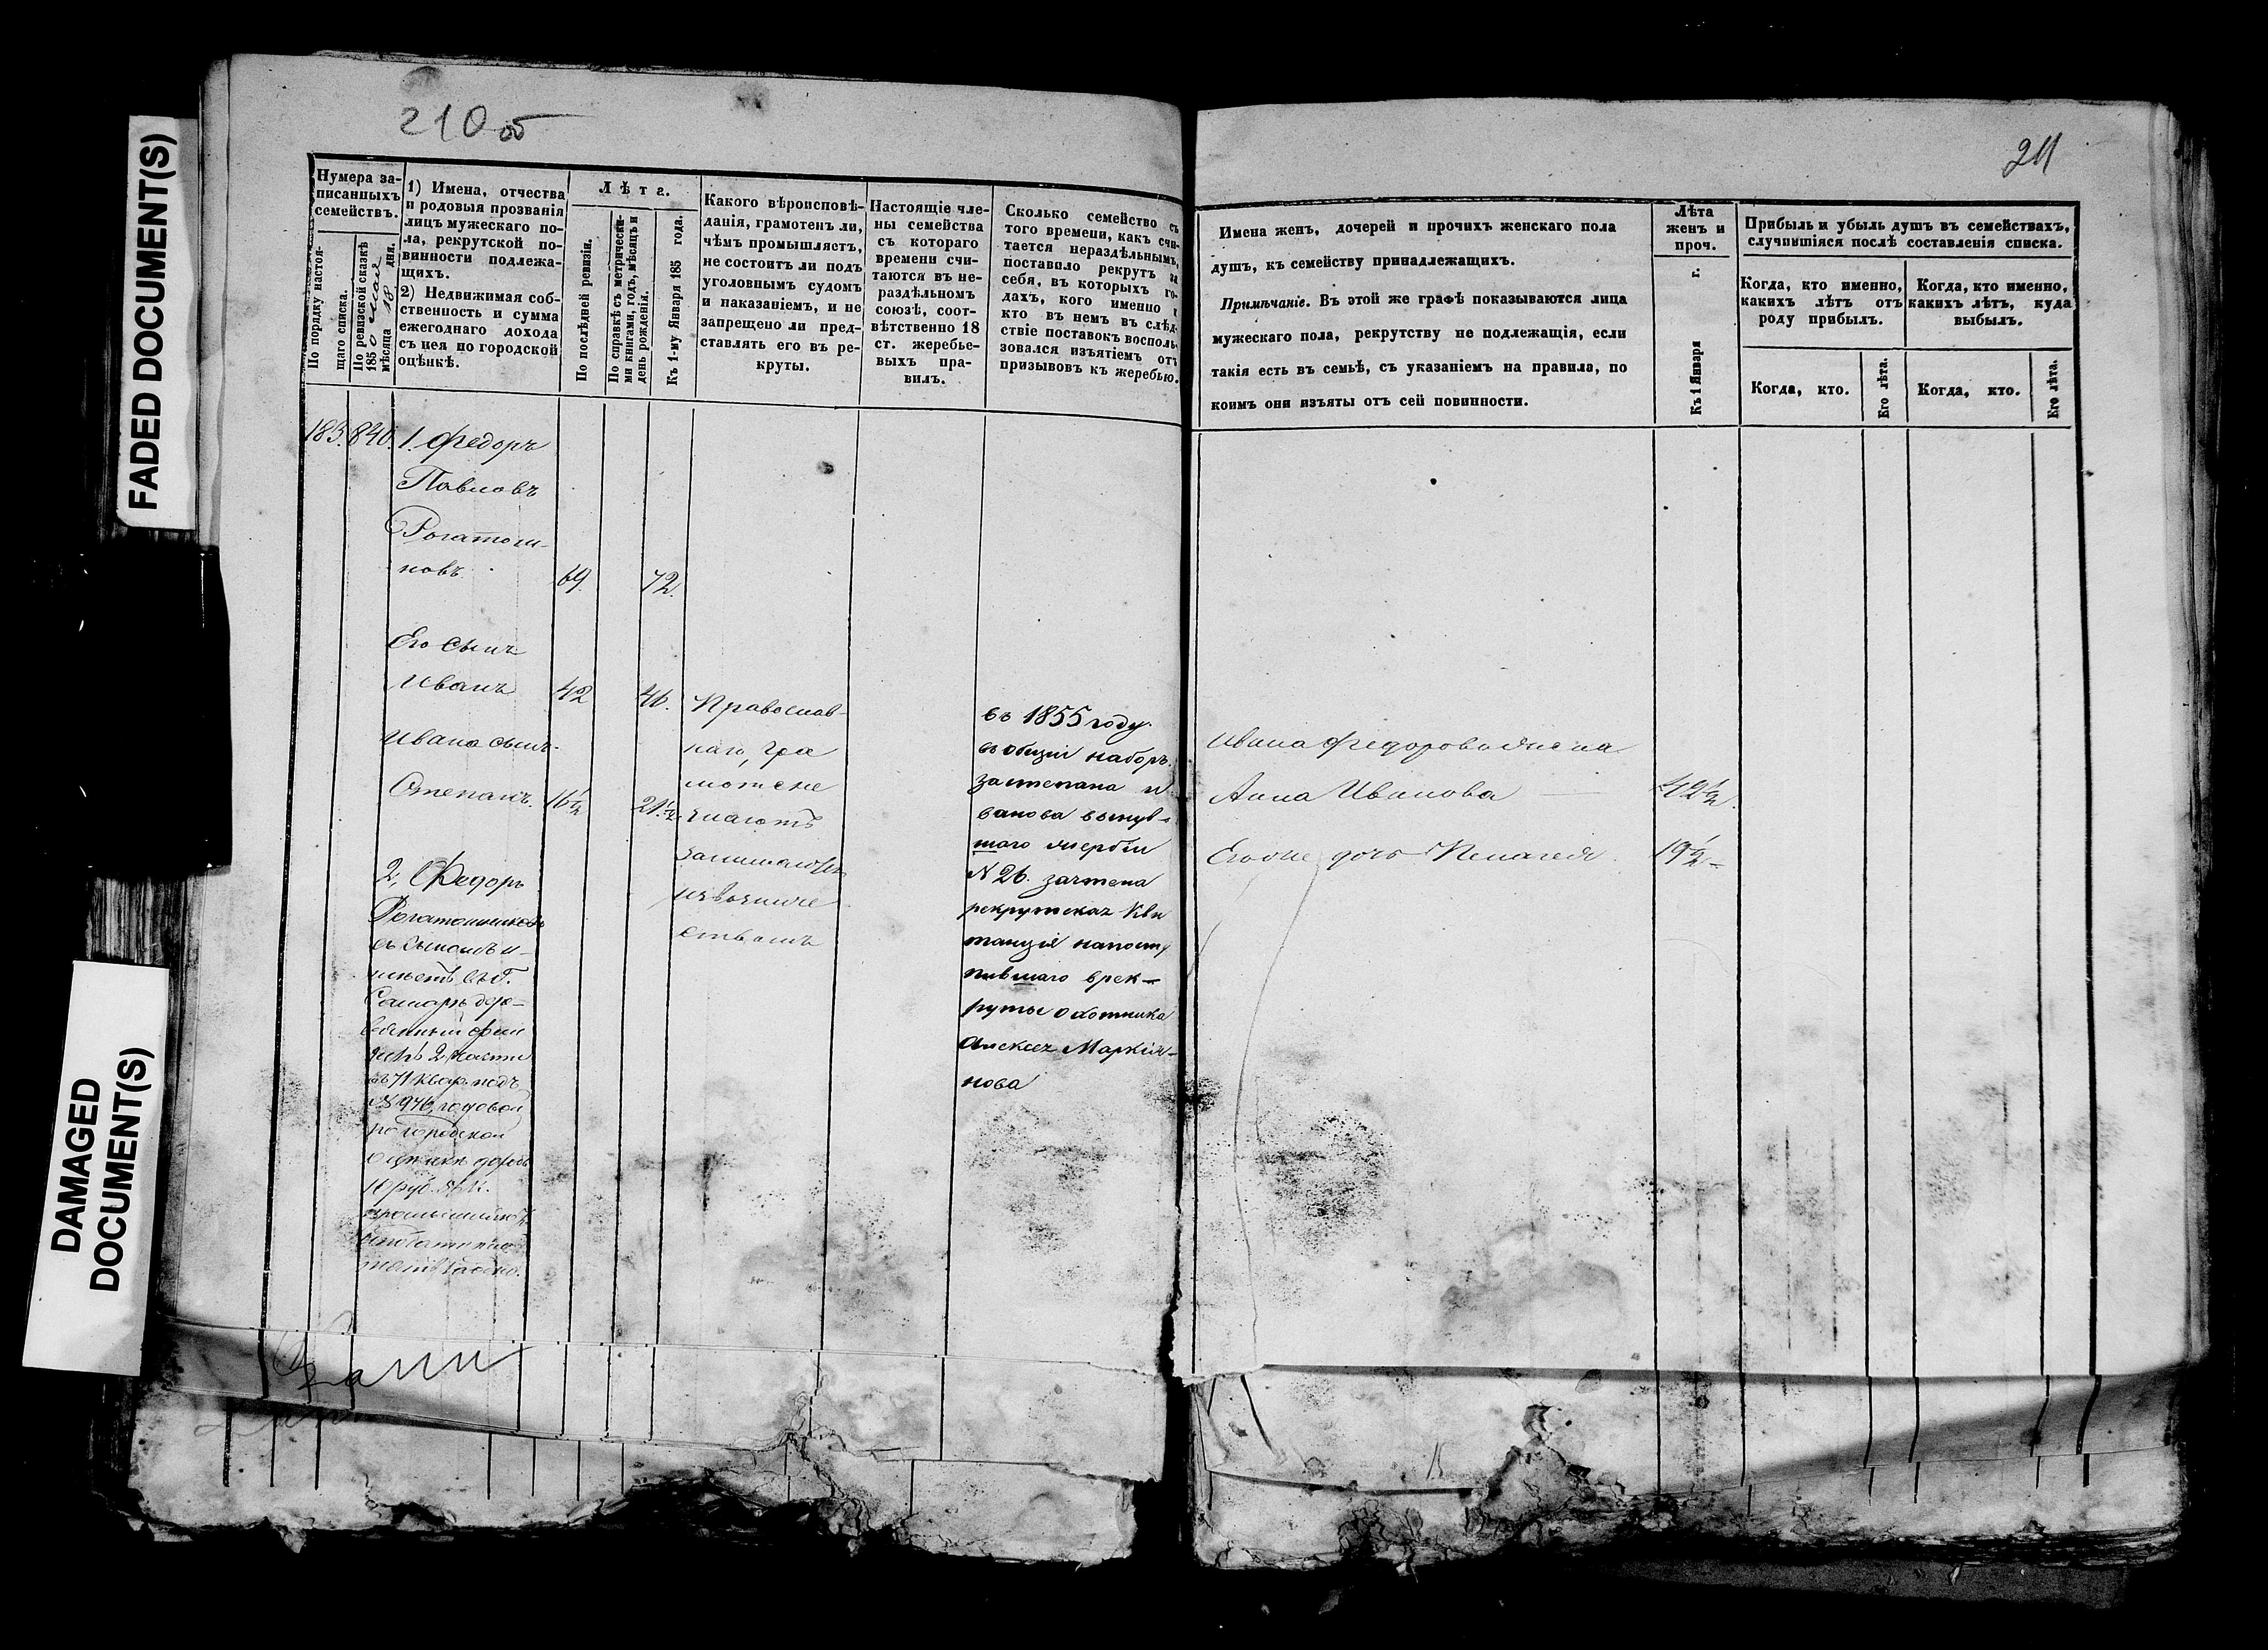 FADED DOCUMENT(S)
DAMAGED
DOCUMENT(S)
210 об
Нумера за-
писанныхъ
семействъ.
По порядку настоя-
щаго списка.
По ревизской сказкѣ
1850
мѣсяца 18 дня.
1) Имена, отчества
и родовыя прозванія
лицъ мужескаго по-
ла, рекрутской по-
винности подлежа-
щихъ.
2) Недвижимая соб-
ственность и сумма
ежегоднаго дохода
съ нея по городской
оцѣнкѣ.
Лѣта.
По послѣдней ревизіи.
По справкѣ съ метрически-
ми книгами, годъ, мѣсяцъ и
день рожденія.
Къ 1-му Января 185 года.
Какого вѣроисповѣ-
данія, грамотенъ ли,
чѣмъ промышляетъ,
не состоитъ ли подъ
уголовнымъ судомъ
и наказаніемъ, и не
запрещено ли пред-
ставлять его въ ре-
круты.
Настоящіе чле-
ны семейства
съ котораго
времени счи-
таются въ не-
раздѣльномъ
союзѣ, соот-
вѣтственно 18
ст. жеребье-
выхъ пра-
вилъ.
Сколько семейство съ
того времени, какъ счи-
тается нераздѣльнымъ,
поставило рекрутъ за
себя, въ которыхъ го-
дахъ, кого именно и
кто въ немъ въ слѣд-
ствіе поставокъ восполь-
зовался изъятіемъ отъ
призывовъ къ жеребью.
183. 840. 1. Федоръ
Павловъ
Рогатони-
ковъ 69. 72.
Его сынъ
Иванъ 42 46.
Ивана сынъ
Степанъ. 16½ 21½
2, Федоръ
съ сыномъ и-
меетъ въ г.
Самаре дере-
вянный
2 части
въ 71 квар. подъ
№ 946, годовой
по городской
оценке доходъ
10 руб.
Православ-
наго, гра
моте не
знаютъ
занимаются
извозниче
ствомъ
въ 1855 году.
въ общій наборъ.
за степана и
ванова вынув-
шаго жербій
№ 26. зачтена
рекрутская Кви
танція на посту
пившаго в рек-
руты охотника
Алексея Маркія-
нова
211
Имена женъ, дочерей и прочихъ женскаго пола
душъ, къ семейству принадлежащихъ.
Примѣчаніе. Въ этой же графѣ показываются лица
мужескаго пола, рекрутству не подлежащія, если
такія есть въ семьѣ, съ указаніемъ на правила, по
коимъ они изъяты отъ сей повинности.
Лѣта
женъ и
проч.
Къ 1 Января г.
Прибыль и убыль душъ въ семействахъ,
случившіяся послѣ составленія списка.
Когда, кто именно,
какихъ лѣтъ отъ
роду прибылъ.
Когда, кто именно,
какихъ лѣтъ, куда
выбылъ.
Когда, кто.
Его лѣта.
Когда, кто.
Его лѣта.
Ивана Федорова жена
Анна Иванова 42½.
Его же дочь Пелагея. 19½